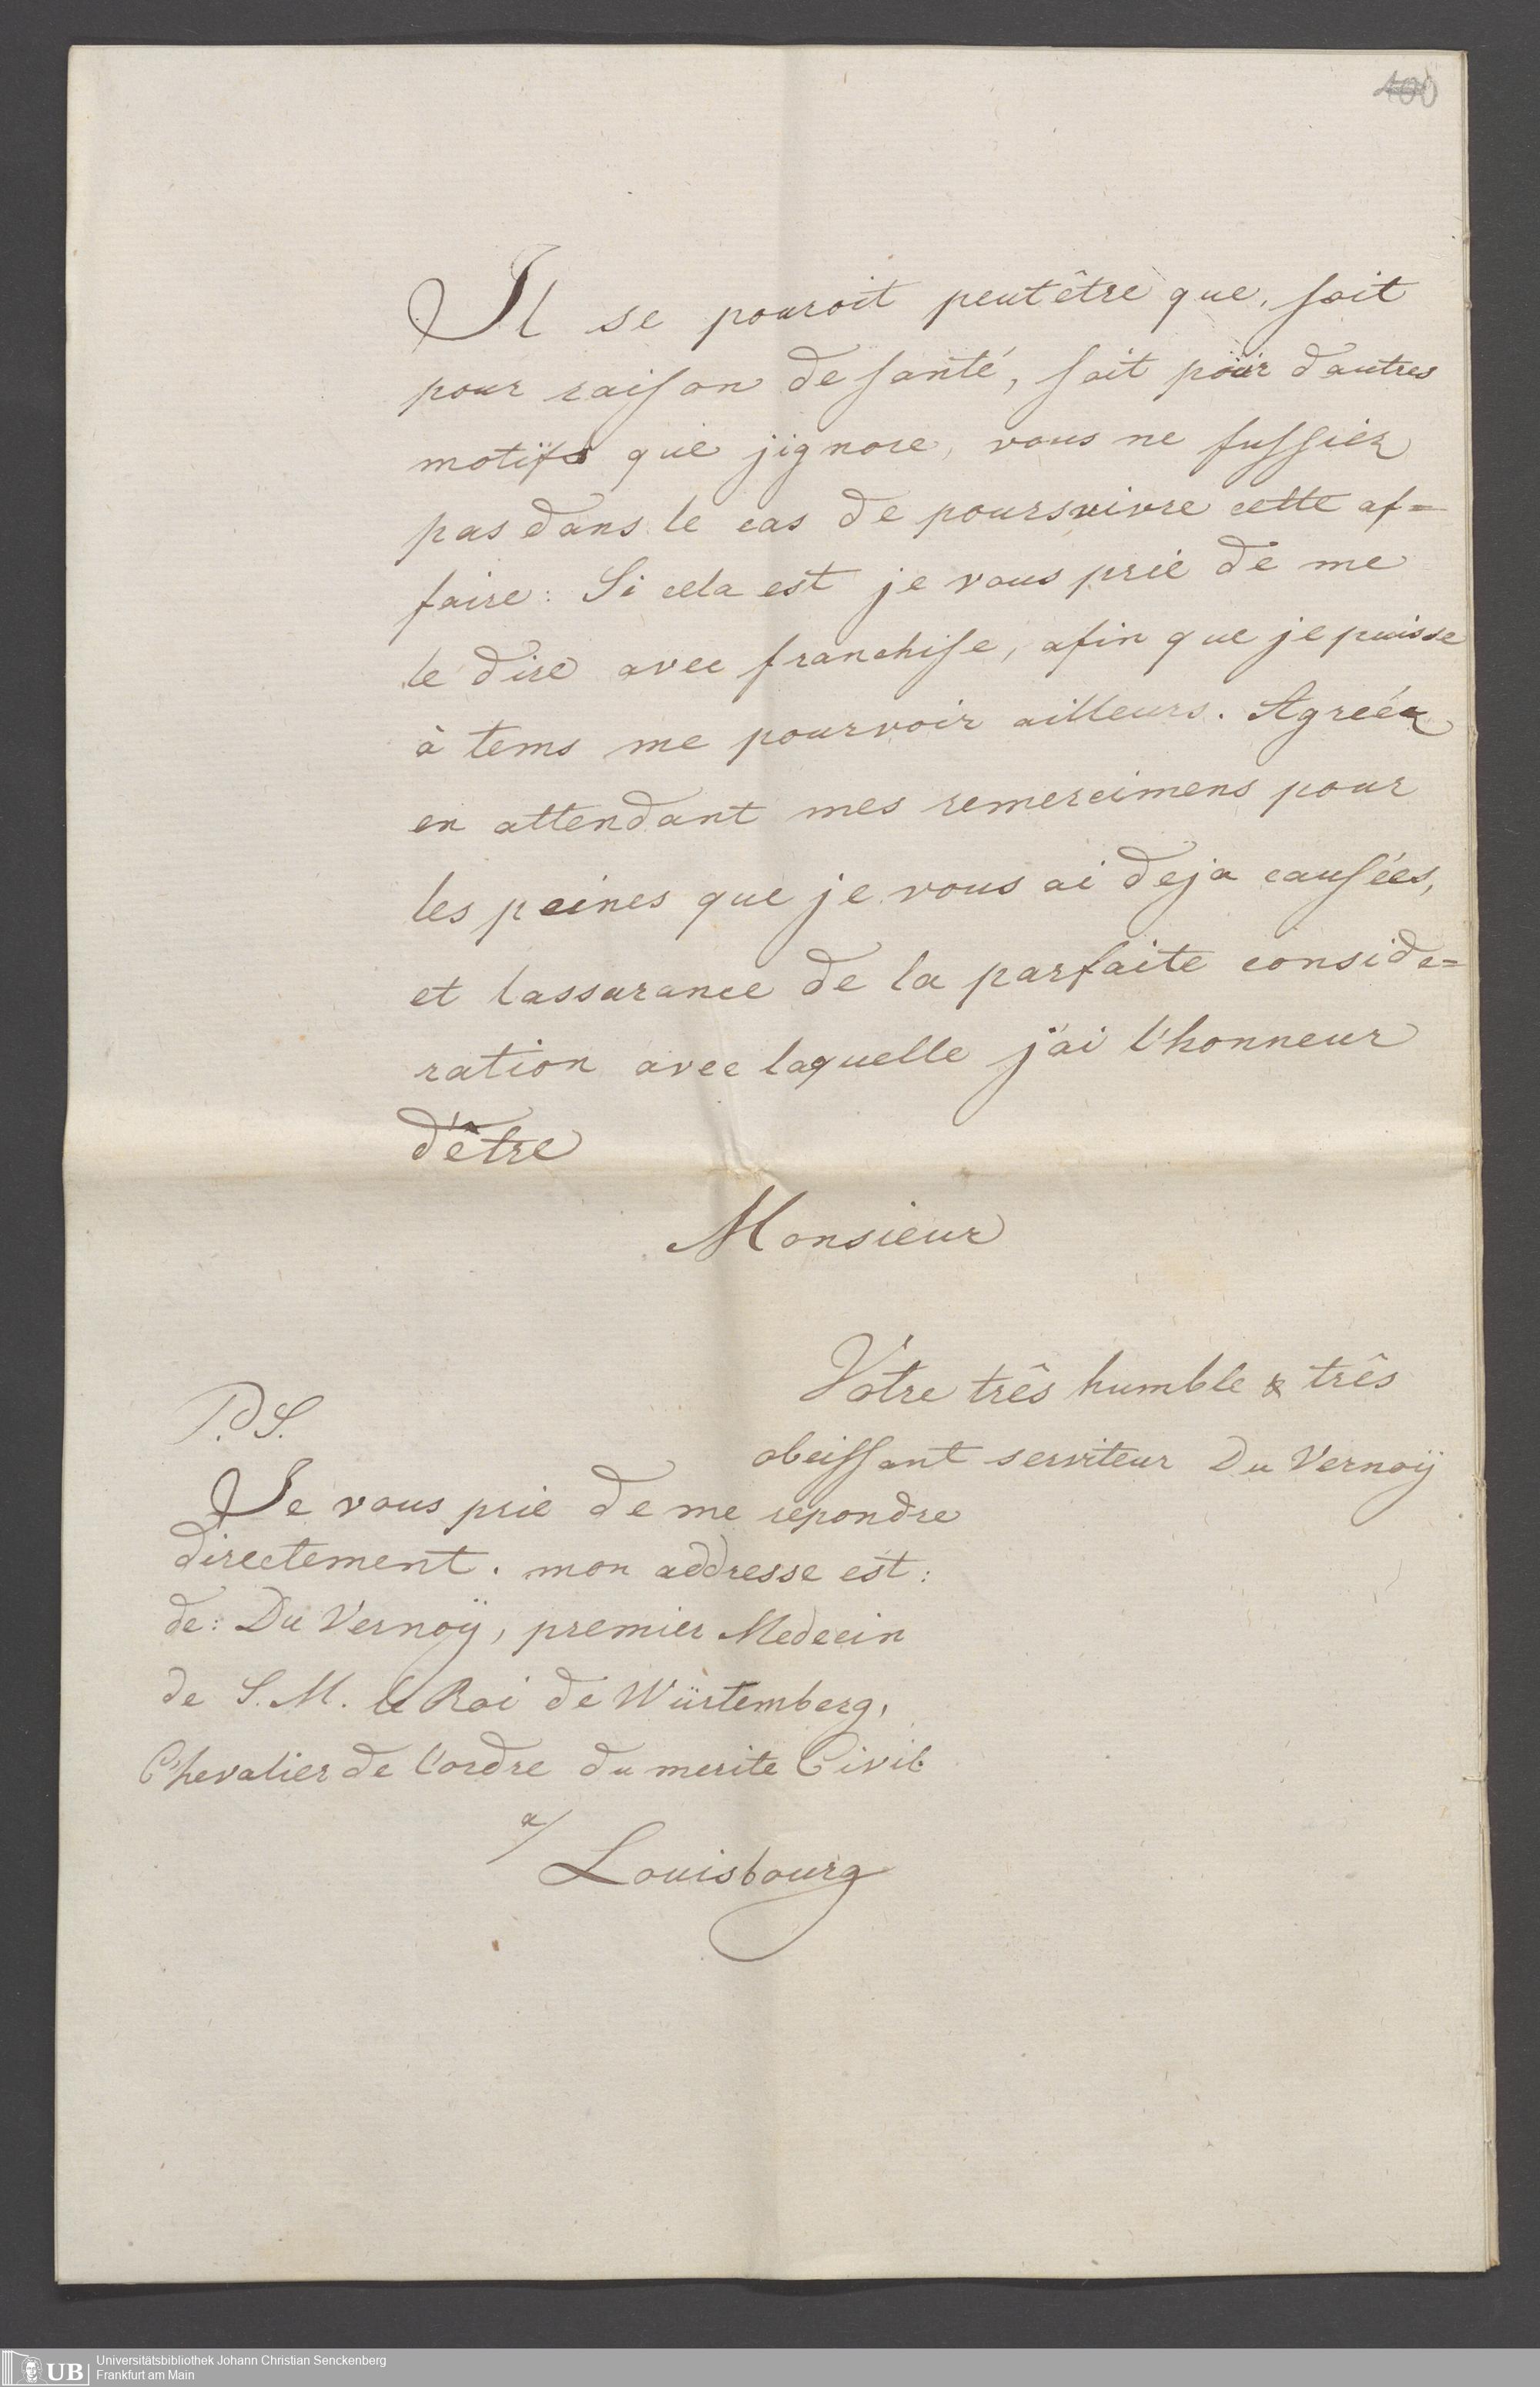 100
Il se pouroit peutêtre que, soit
pour raison de santé, soit pour dautres
motifs que jignore, vous ne fussiez
pas dans le cas de poursuivre cette af=
faire: Si cela est je vous prie de me
le dire avec franchise, afin que je puisse
à tems me pourvoir ailleurs. Agréez
en attendant mes remercimens pour
les peines que je vous ai deja causées,
et lassurance de la parfaite conside=
ration avec laquelle j'ai l'honneur
d'être
Monsieur
Votre três humble & três
obeissant serviteur Du Vernoÿ
P.S.
Je vous prie de me repondre
directement. mon addresse est:
de: Du Vernoÿ, premier Medecin
de S. M. le Roi de Würtemberg,
Chevalier de l'ordre du merite Civil
a/
Louisbourg
UB
Universitätsbibliothek Johann Christian Senckenberg
Frankfurt am Main